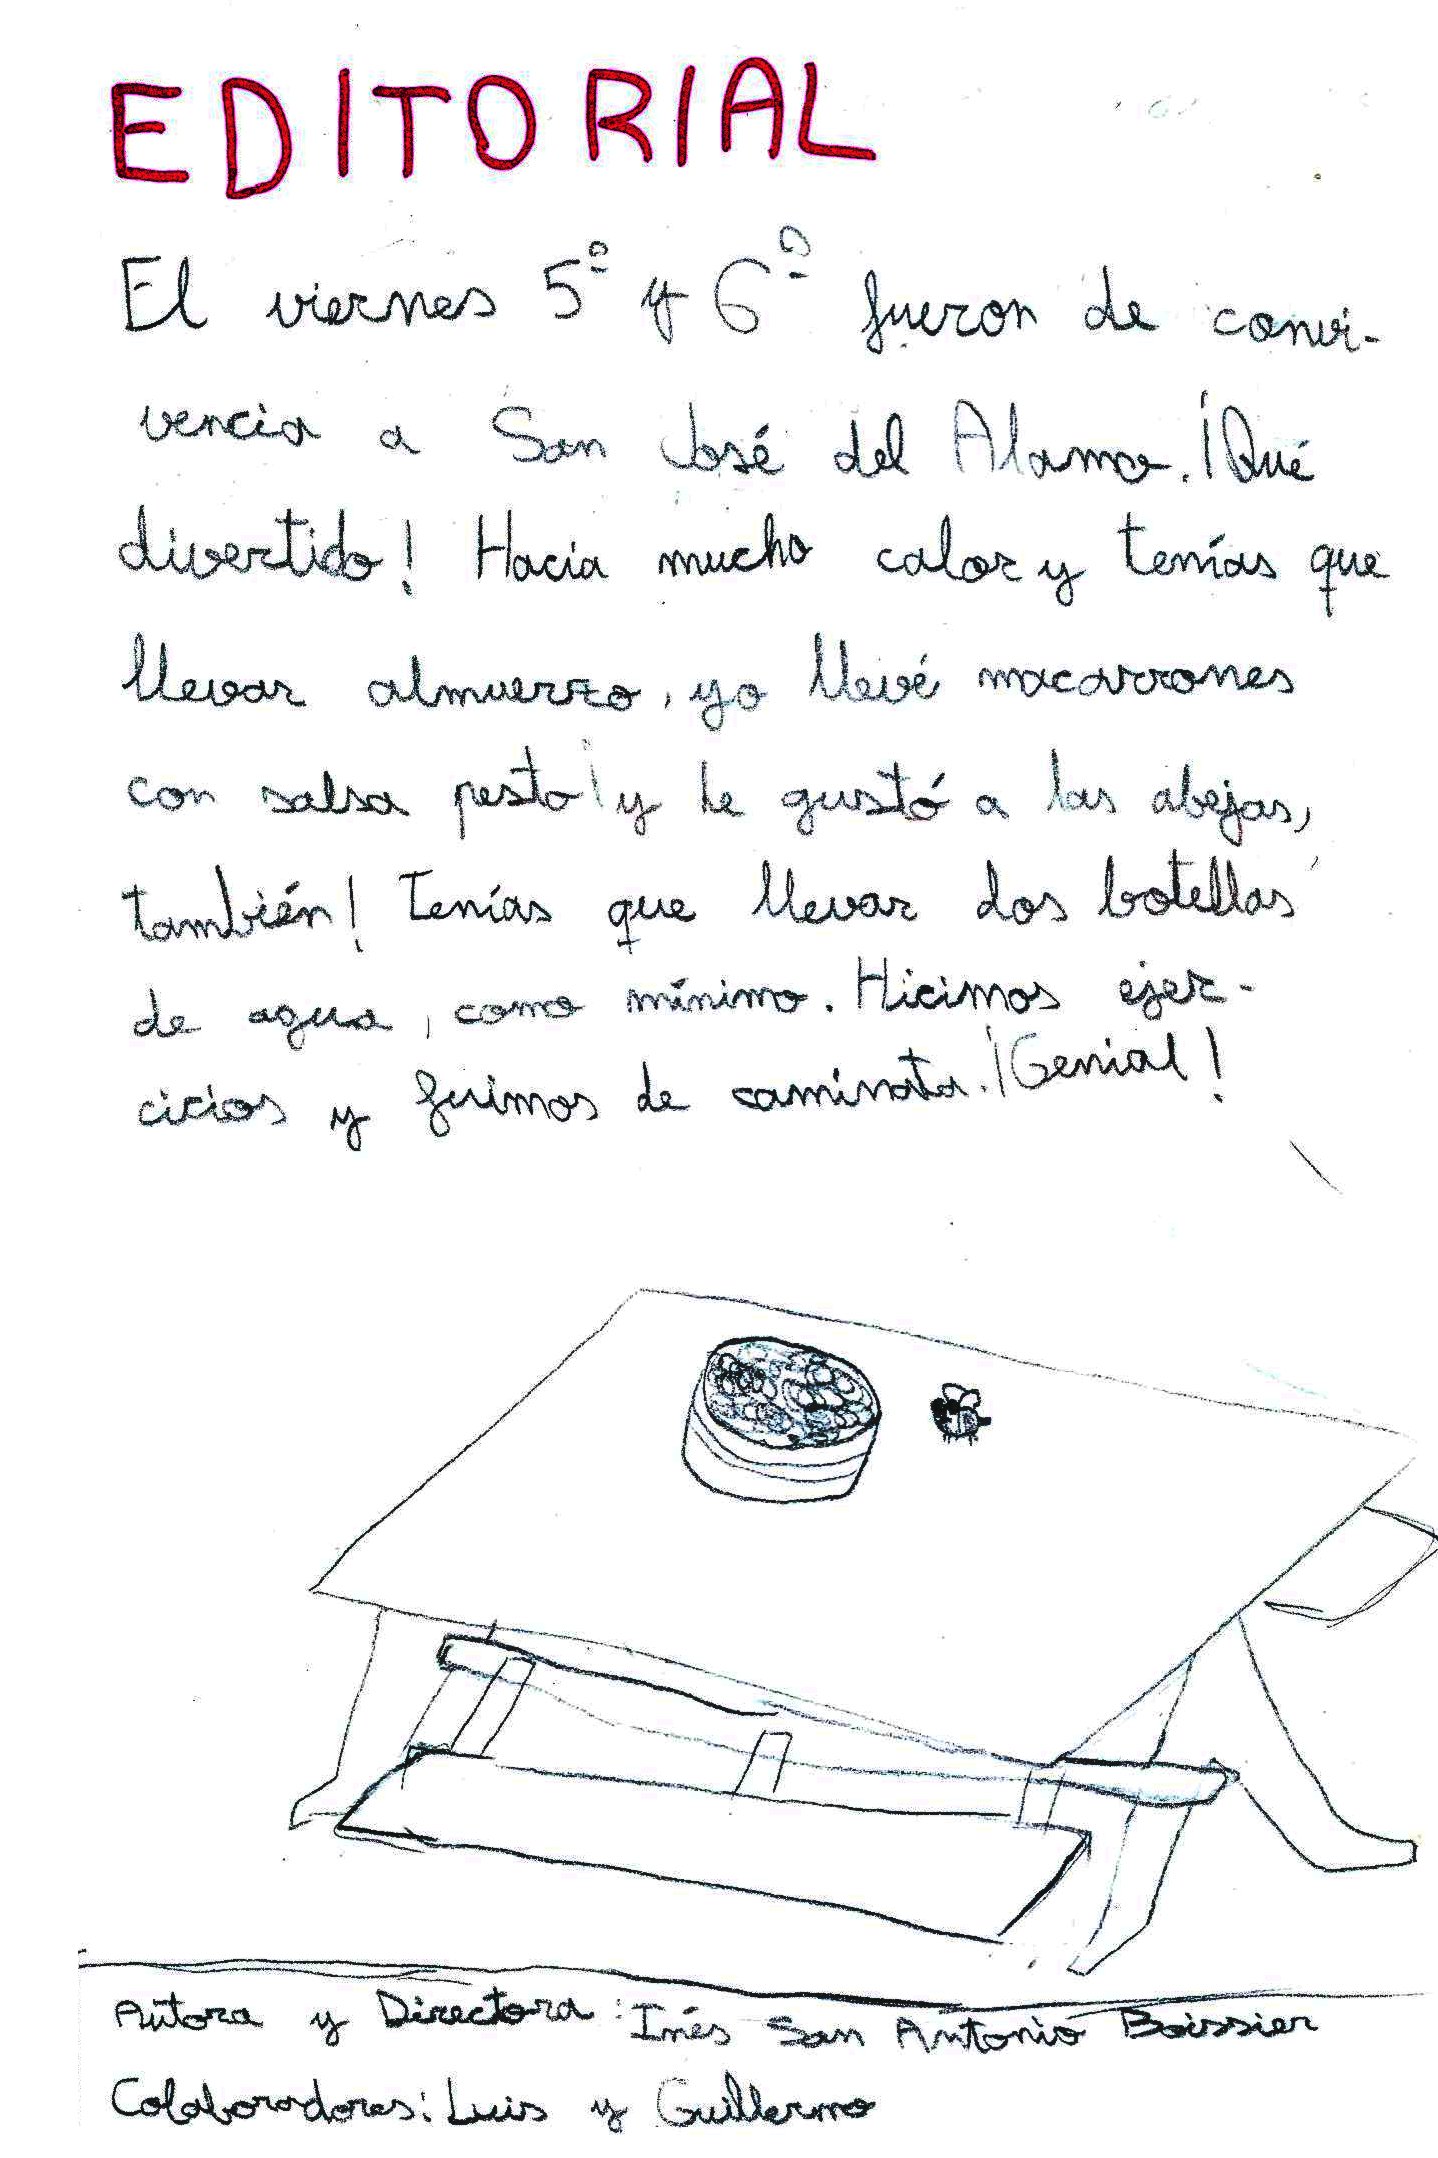 EDITORIAL
El viernes 5º y 6º fueron de convi-
vencia a San José del Alamo. ¡Qué
divertido! Hacía mucho calor y tenías que
llevar almuerzo, yo llevé macarrones
con salsa pesto ¡y le gustó a las abejas,
también! Tenías que llevar dos botellas
de agua, como mínimo. Hicimos ejer-
cicios y fuimos de caminata. ¡Genial!
Autora y Directora: Inés San Antonio Boissier
Colaboradores: Luis y Guillermo